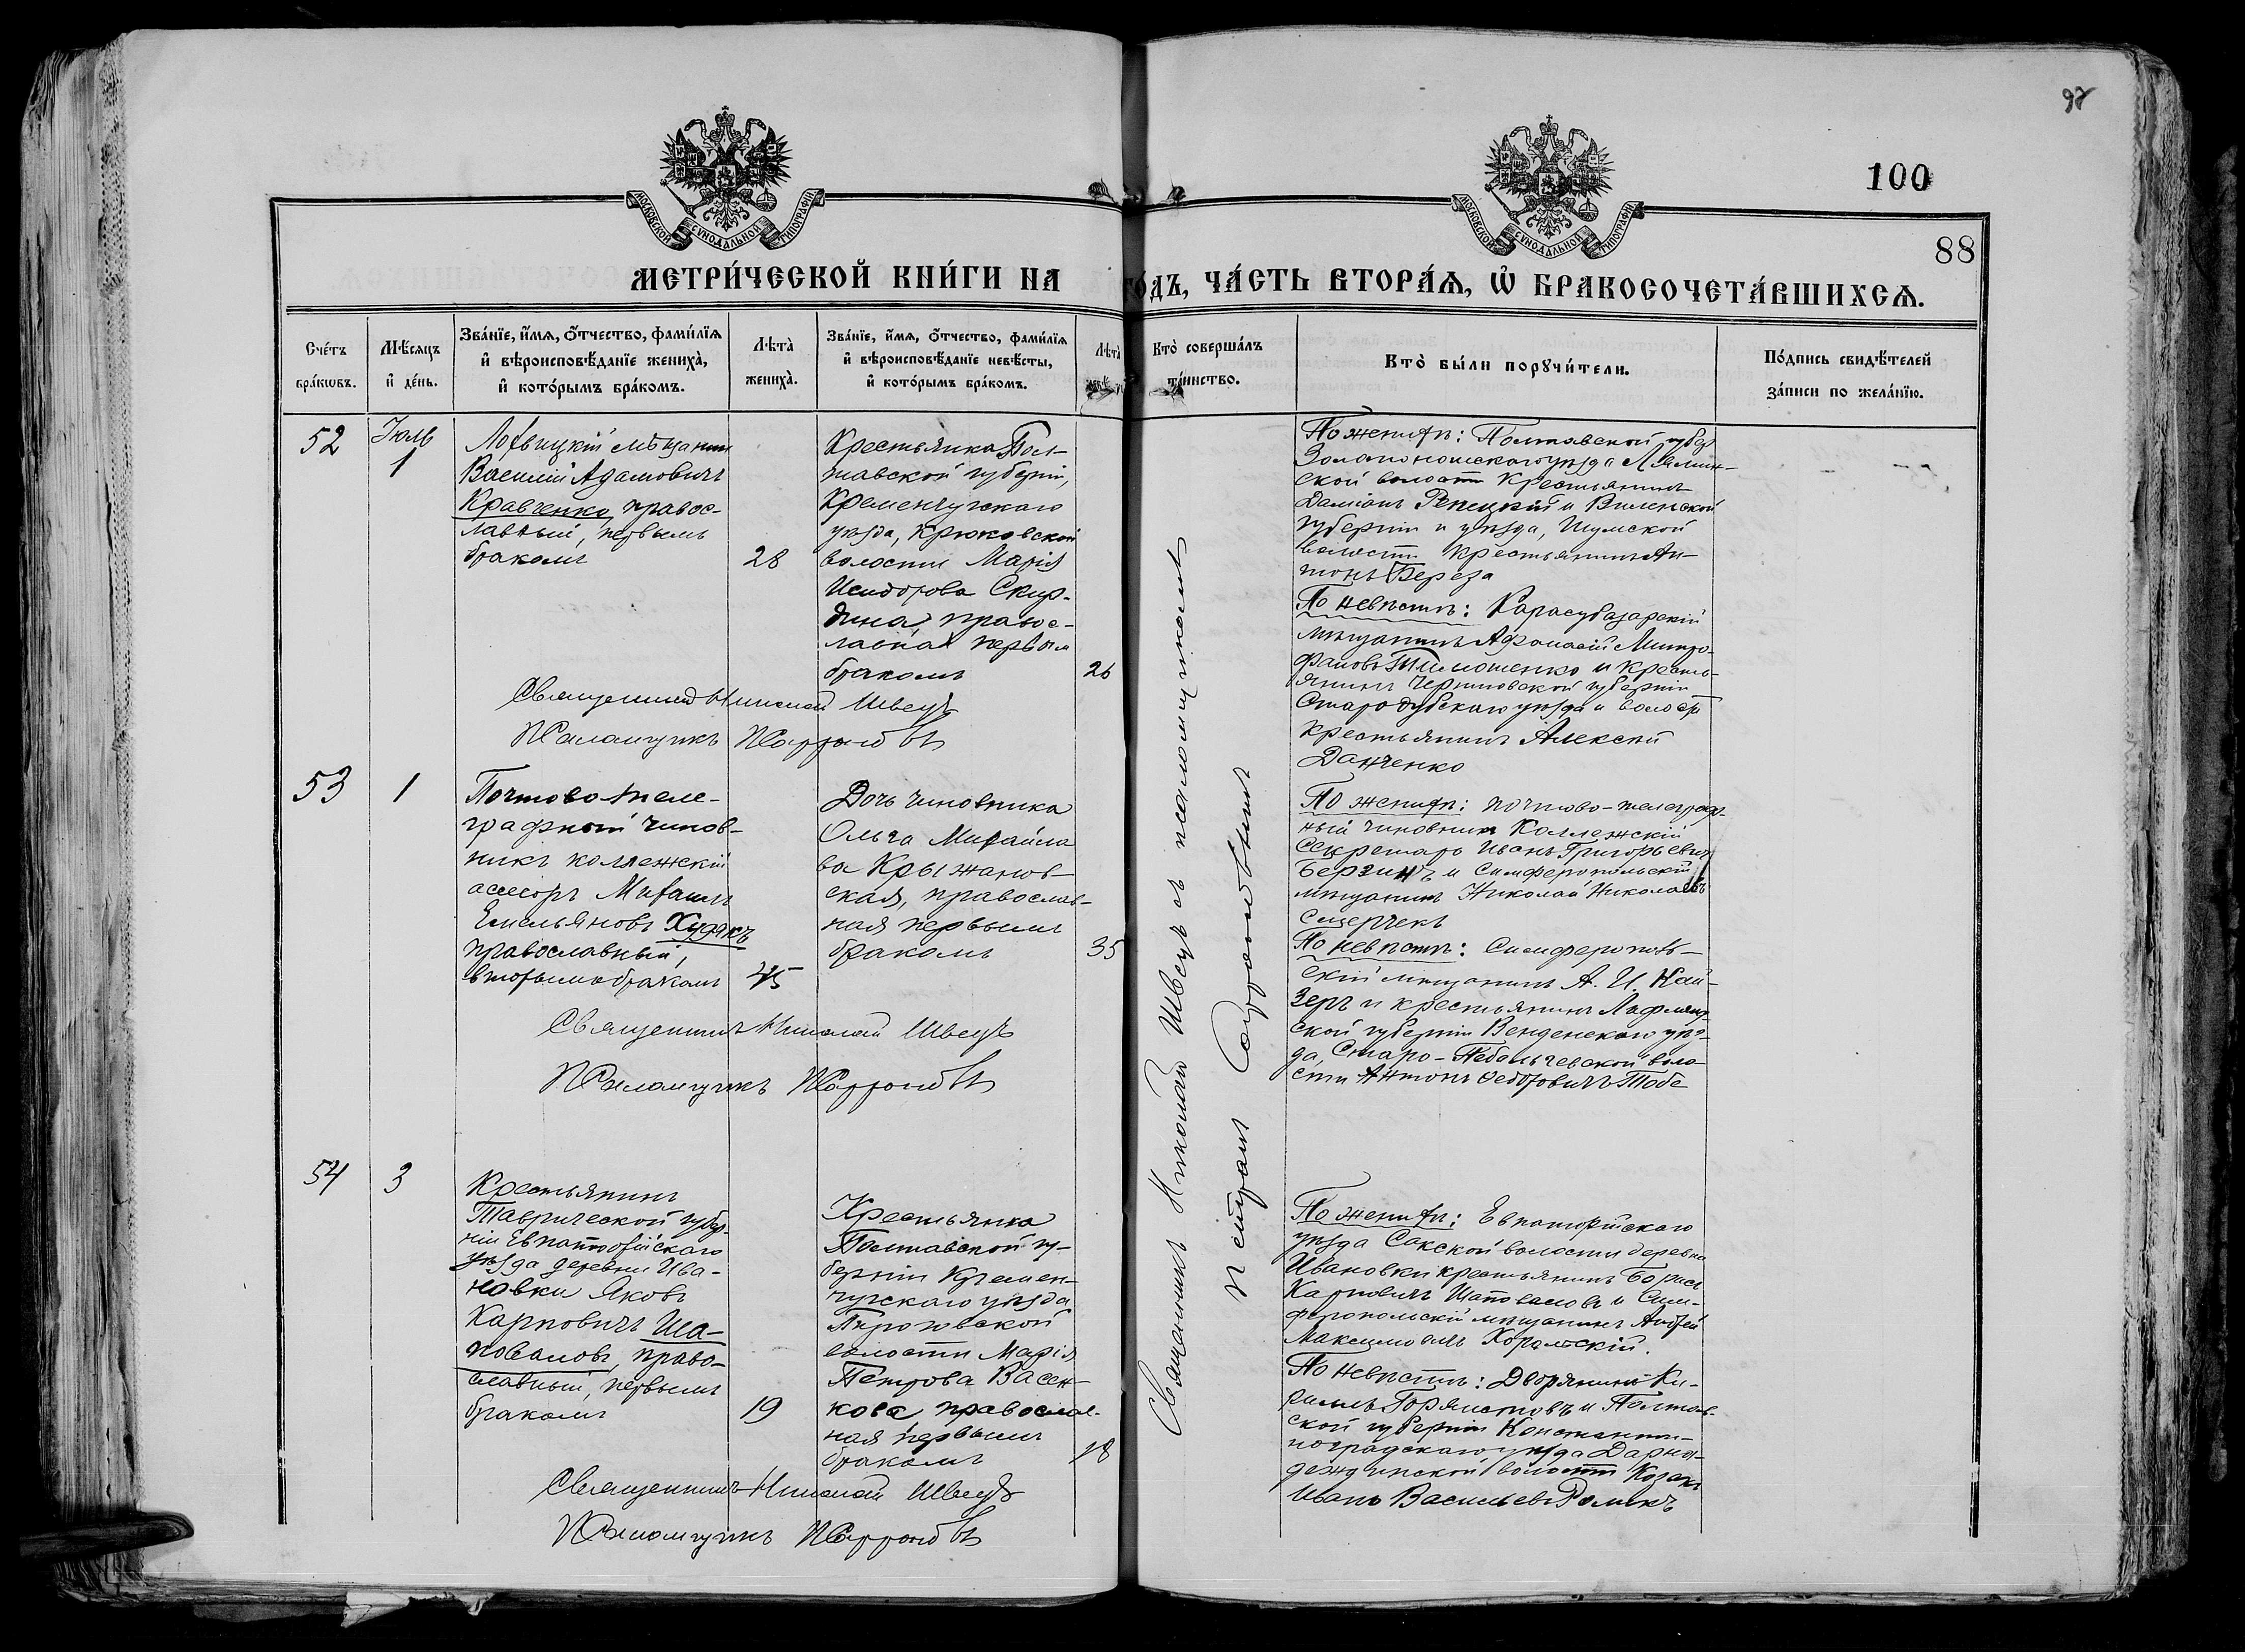 97
100
88
МОСКОВСКОЙ СУНОДАЛЬНОЙ ТИПОГРАФІИ
МОСКОВСКОЙ СУНОДАЛЬНОЙ ТИПОГРАФІИ
МЕТРИ́ЧЕСКОЙ КНИ́ГИ НА
го́дъ, ЧА́СТЬ ВТОРА́Ѧ, Ѽ БРАКОСОЧЕТА́ВШИХСѦ.
Сче́тъ
бра́кѡвъ.
Мѣ́сяцъ
и҆ де́нь.
Зва́нїе, и҆́мѧ, ѻ҆́тчество, фами́лїѧ
и҆ вѣроисповѣ́данїе жениха̀,
и҆ кото́рымъ бра́комъ.
Лѣта̀
жениха̀.
Зва́нїе, и҆́мѧ, ѻ҆́тчество, фами́лїѧ
и҆ вѣроисповѣ́данїе невѣ́сты,
и҆ кото́рымъ бра́комъ.
Лѣта̀
Кто̀ соверша́лъ
та́инство.
Кто̀ бы́ли порꙋчи́тели.
По́дпись свидѣ́телей
за́писи по жела́нїю.
52
Іюль
1
Лохвицкій мѣщанинъ
Василій Адамовичъ
Кравченко, правос-
лавный, первымъ
бракомъ
28
Крестьянка Пол-
тавской губерніи,
Кременчугскаго
уѣзда, Крюковской
волости Марія
Исидорова Скир-
дина, правос-
лавная первым
бракомъ
26
Священникъ Николай Швецъ
Псаломщикъ
По женихѣ: Полтавской губер
Золотоношскаго уѣзда
ской волости Крестьянинъ
Даміанъ Репецкій и Виленской
губерніи и уѣзда, Шумской
волости крестьянинъ Ан-
тонъ Береза
По невѣстѣ: Карасубазарскій
мѣщанинъ Афанасій Митро-
фановъ Тимошенко и кресть-
янинъ Черниговской губерніи
Стародубскаго уѣзда и волости
крестьянинъ Алексѣй
Данченко
53
1
Почтово-теле-
графный чинов-
никъ коллежскій
асессоръ Михаилъ
Емельяновъ Худякъ
православный,
вторымъ бракомъ
45
Дочь чиновника
Ольга Михайло
ва Крыжанов-
ская, православ-
ная первымъ
бракомъ
35
Священникъ Николай Швецъ
Псаломщикъ
По женихѣ: почтово-телеграф-
ный чиновникъ Коллежскій
Секретарь Иванъ Григорьевичъ
Берзинъ и Симферопольскій
мѣщанинъ Николай Николаевъ
По невѣстѣ: Симферополь-
скій мѣщанинъ А. И. Кай-
зеръ и крестьянинъ Лифлянд
ской губерніи Венденскаго уѣз-
да, Старо-Пебальгевской воло-
сти Антонъ Ѳедоровичъ Тобе
54
3
Крестьянинъ
Таврической губер-
ніи Евпаторійскаго
уѣзда деревни Ива-
новки Яковъ
Карповичъ Ша-
поваловъ, право-
славный, первымъ
бракомъ
19
Крестьянка
Полтавской гу-
берніи Кремен-
чугскаго уѣзда
волости Марія
Петрова Васен-
кова, православ-
ная первымъ
бракомъ
18
Священникъ Николай Швецъ
Псаломщикъ
По женихѣ: Евпаторійскаго
уѣзда Сакской волости деревни
Ивановки крестьянинъ Борисъ
Карповичъ Шаповаловъ и Сим-
феропольскій мѣщанинъ Андрей
Максимовичъ Хорольскій.
По невѣстѣ: Дворянинъ Ки-
риллъ и Полтав-
ской губерніи Константи-
ноградскаго уѣзда
волости Козакъ
Иванъ Васильевъ
Священникъ Николай Швецъ съ псаломщикомъ